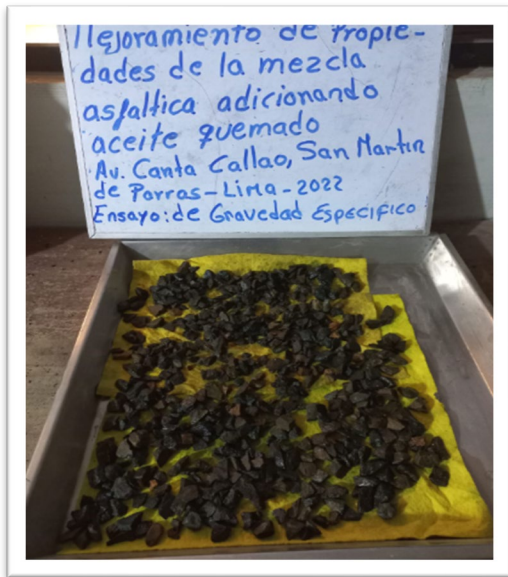 Mejoramiento de Propie-
dades de la mezcla
asfaltica adicionando
aceite quemado
Av. Canta Callao, San Martin
de Porras-Lima-2022
Ensayo: de Gravedad Especifico